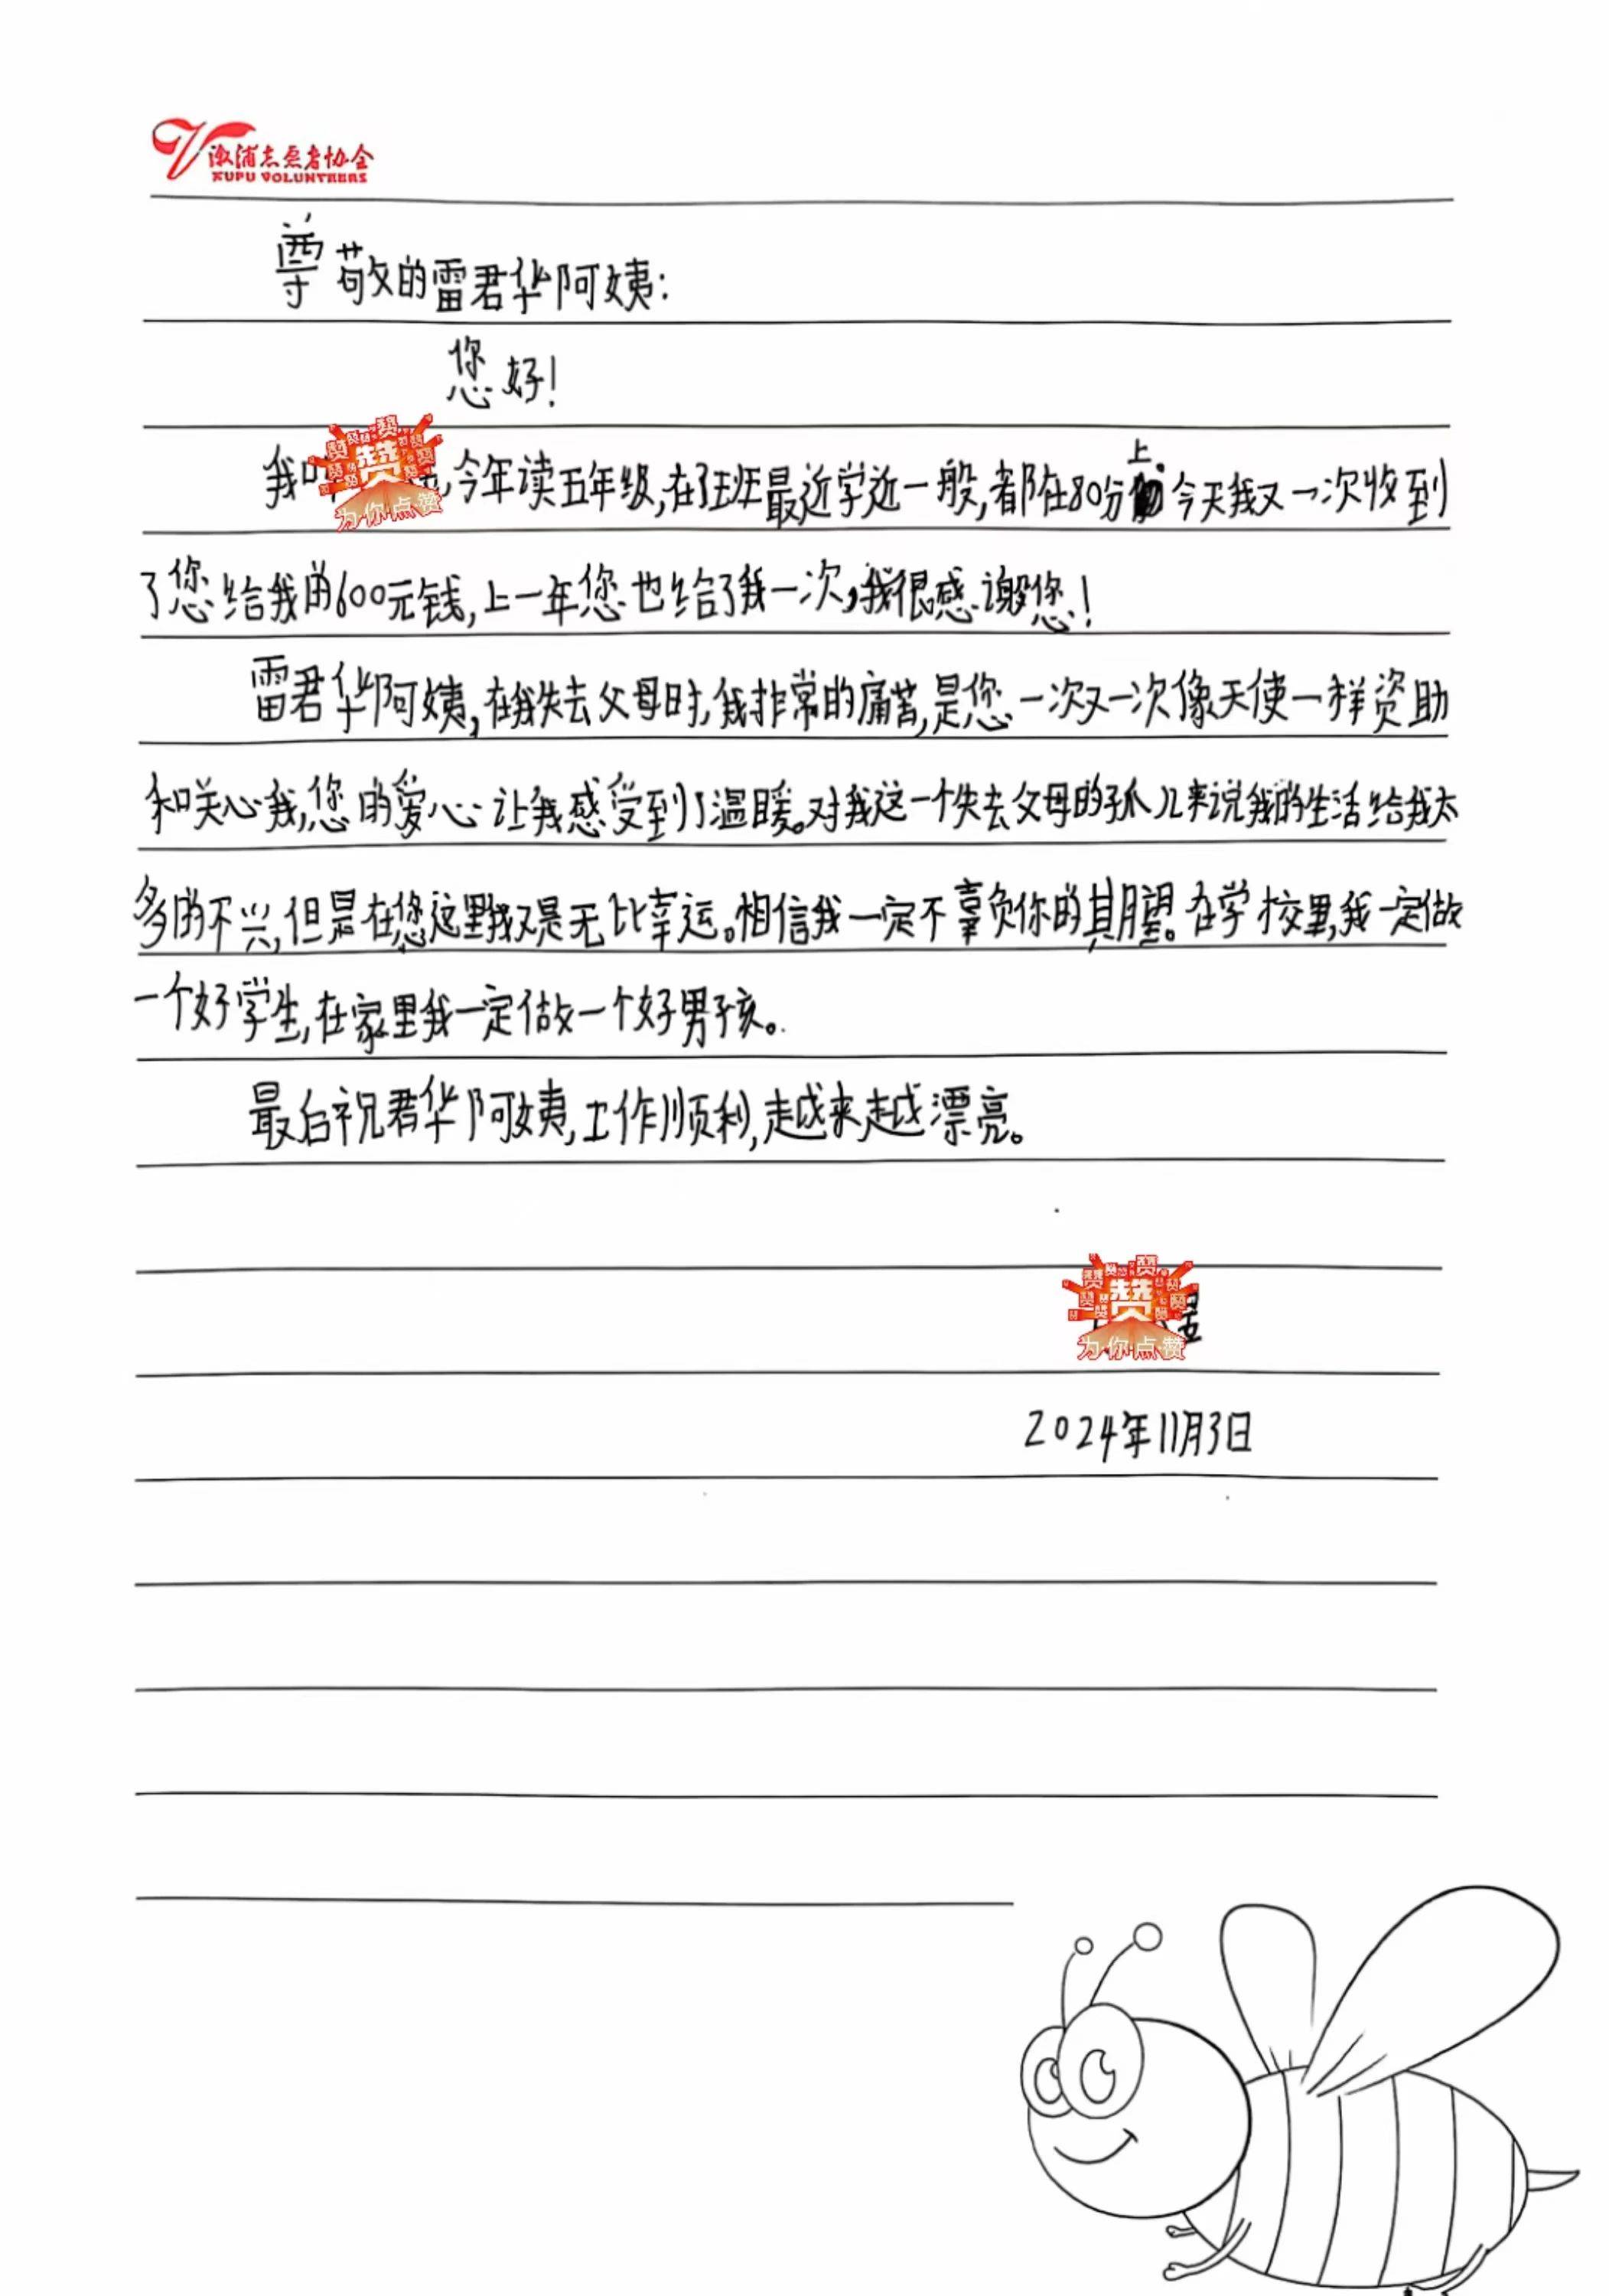 溆浦志愿者协会
XUPU VOLUNTEERS
尊敬的雷君华阿姨:
您好!
我叫 今年读五年级,在班班最近学近一般,都在80分上。今天我又一次收到
了您给我的600元钱,上一年您也给了我一次,我很感谢您!
雷君华阿姨,在我失去父母时,我非常的痛苦,是您一次又一次像天使一样资助
和关心我,您的爱心让我感受到了温暖。对我这一个失去父母的孤儿来说我的生活给我太
多的不兴,但是在您这里我又是无比幸运。相信我一定不辜负你的期望。在学校里,我一定做
一个好学生,在家里我一定做一个好男孩。
最后祝君华阿姨,工作顺利,越来越漂亮。
赞
为你点赞
2024年11月3日